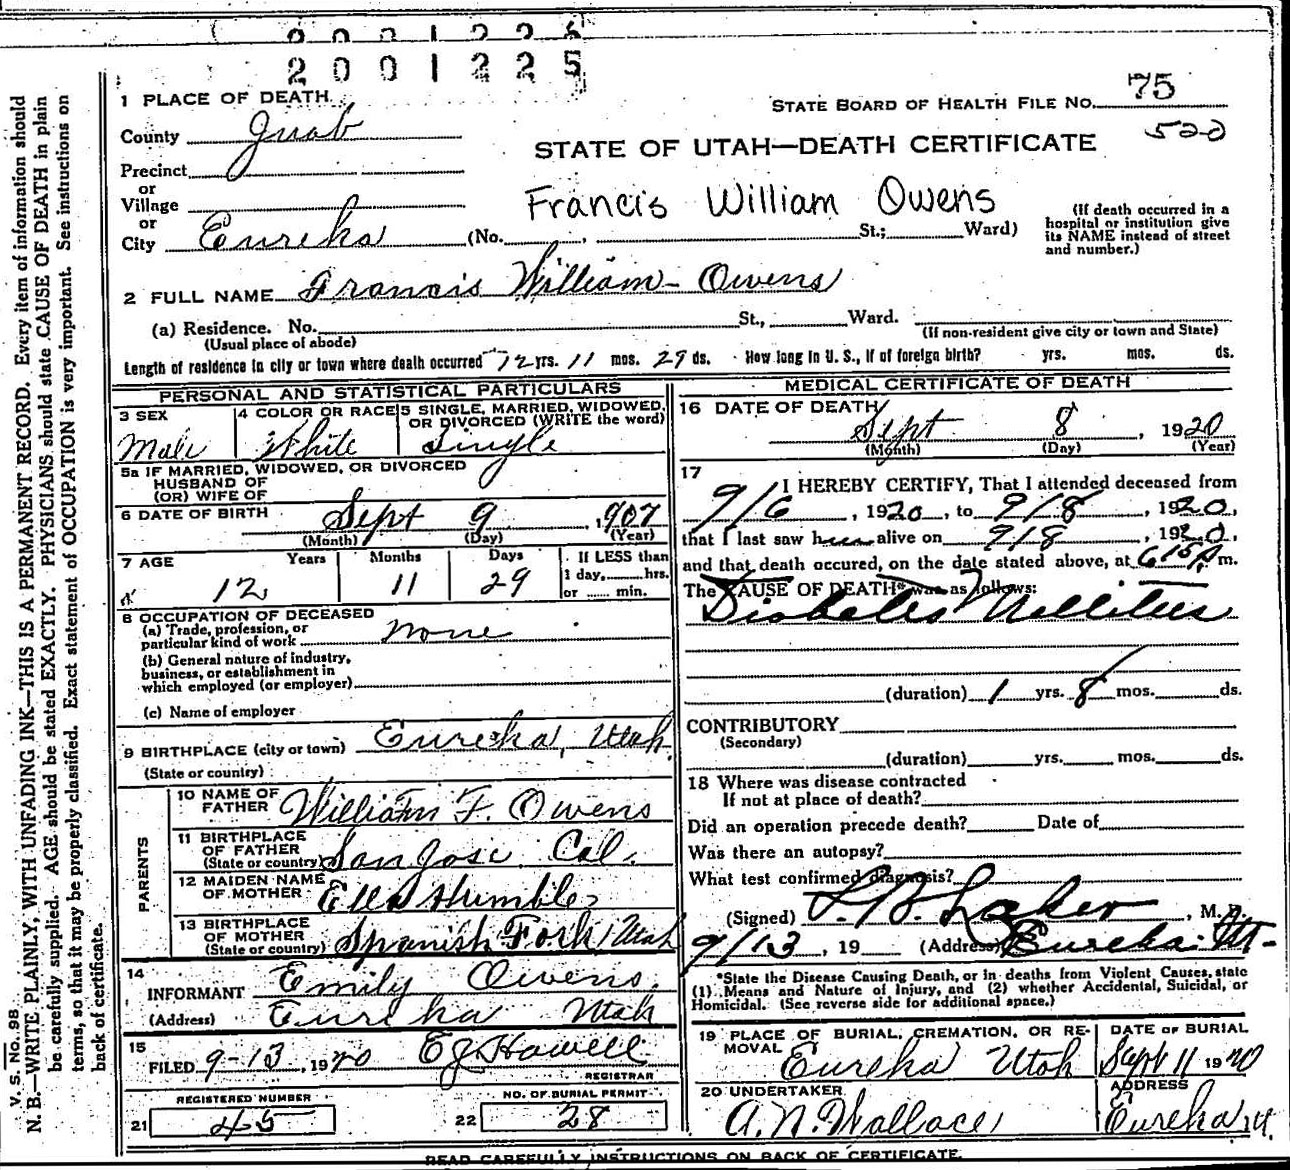 2001225
2001225
1 PLACE OF DEATH
County Juab
Precinct
or
Village
or
City Eureka (No. , St.; Ward)
STATE BOARD OF HEALTH FILE NO. 75
520
STATE OF UTAH—DEATH CERTIFICATE
Francis William Owens
(If death occurred in a
hospital or institution give
its NAME instead of street
and number.)
2 FULL NAME Francis William Owens
(a) Residence. No. St., Ward.
(Usual place of abode)
(If non-resident give city or town and State)
Length of residence in city or town where death occurred 12 yrs. 11 mos. 29 ds. How long in U. S., if of foreign birth? yrs. mos. ds.
PERSONAL AND STATISTICAL PARTICULARS
3 SEX
Male
4 COLOR OR RACE
White
5 SINGLE, MARRIED, WIDOWED,
OR DIVORCED (WRITE the word)
Single
5a IF MARRIED, WIDOWED, OR DIVORCED
HUSBAND OF
(OR) WIFE OF
6 DATE OF BIRTH Sept 9, 1907
(Month) (Day) (Year)
7 AGE Years Months Days If LESS than
1 day, hrs.
or min.
12 11 29
8 OCCUPATION OF DECEASED
(a) Trade, profession, or
particular kind of work none
(b) General nature of industry,
business, or establishment in
which employed (or employer)
(c) Name of employer
9 BIRTHPLACE (city or town) Eureka, Utah
(State or country)
PARENTS
10 NAME OF
FATHER William F. Owens
11 BIRTHPLACE
OF FATHER
(State or country) San Jose Cal.
12 MAIDEN NAME
OF MOTHER Ella Humbler
13 BIRTHPLACE
OF MOTHER
(State or country) Spanish Fork, Utah
14
INFORMANT Emily Owens
(Address) Eureka Utah
15
FILED 9-13, 1920 E J Howell
REGISTRAR
REGISTERED NUMBER
21 45
NO. OF BURIAL PERMIT
22 28
MEDICAL CERTIFICATE OF DEATH
16 DATE OF DEATH
Sept 8, 1920
(Month) (Day) (Year)
17
I HEREBY CERTIFY, That I attended deceased from
9/6, 1920, to 9/8, 1920,
that I last saw him alive on 9/8, 1920,
and that death occured, on the date stated above, at 6 15 P m.
The CAUSE OF DEATH* was as follows:
Diabetes Mellitus
(duration) 1 yrs. 8 mos. ds.
CONTRIBUTORY
(Secondary)
(duration) yrs. mos. ds.
18 Where was disease contracted
If not at place of death?
Did an operation precede death? Date of
Was there an autopsy?
What test confirmed diagnosis?
(Signed) , M. D.
9/13, 19 (Address) Eureka Ut-
*State the Disease Causing Death, or in deaths from Violent Causes, state
(1) Means and Nature of Injury, and (2) whether Accidental, Suicidal, or
Homicidal. (See reverse side for additional space.)
19 PLACE OF BURIAL, CREMATION, OR RE-
MOVAL Eureka Utah
DATE OF BURIAL
Sept 11 1920
20 UNDERTAKER
A. N. Wallace
ADDRESS
Eureka, U.
READ CAREFULLY INSTRUCTIONS ON BACK OF CERTIFICATE.
V. S. No. 98
N. B.—WRITE PLAINLY, WITH UNFADING INK—THIS IS A PERMANENT RECORD. Every item of information should
be carefully supplied. AGE should be stated EXACTLY. PHYSICIANS should state CAUSE OF DEATH in plain
terms, so that it may be properly classified. Exact statement of OCCUPATION is very important. See instructions on
back of certificate.